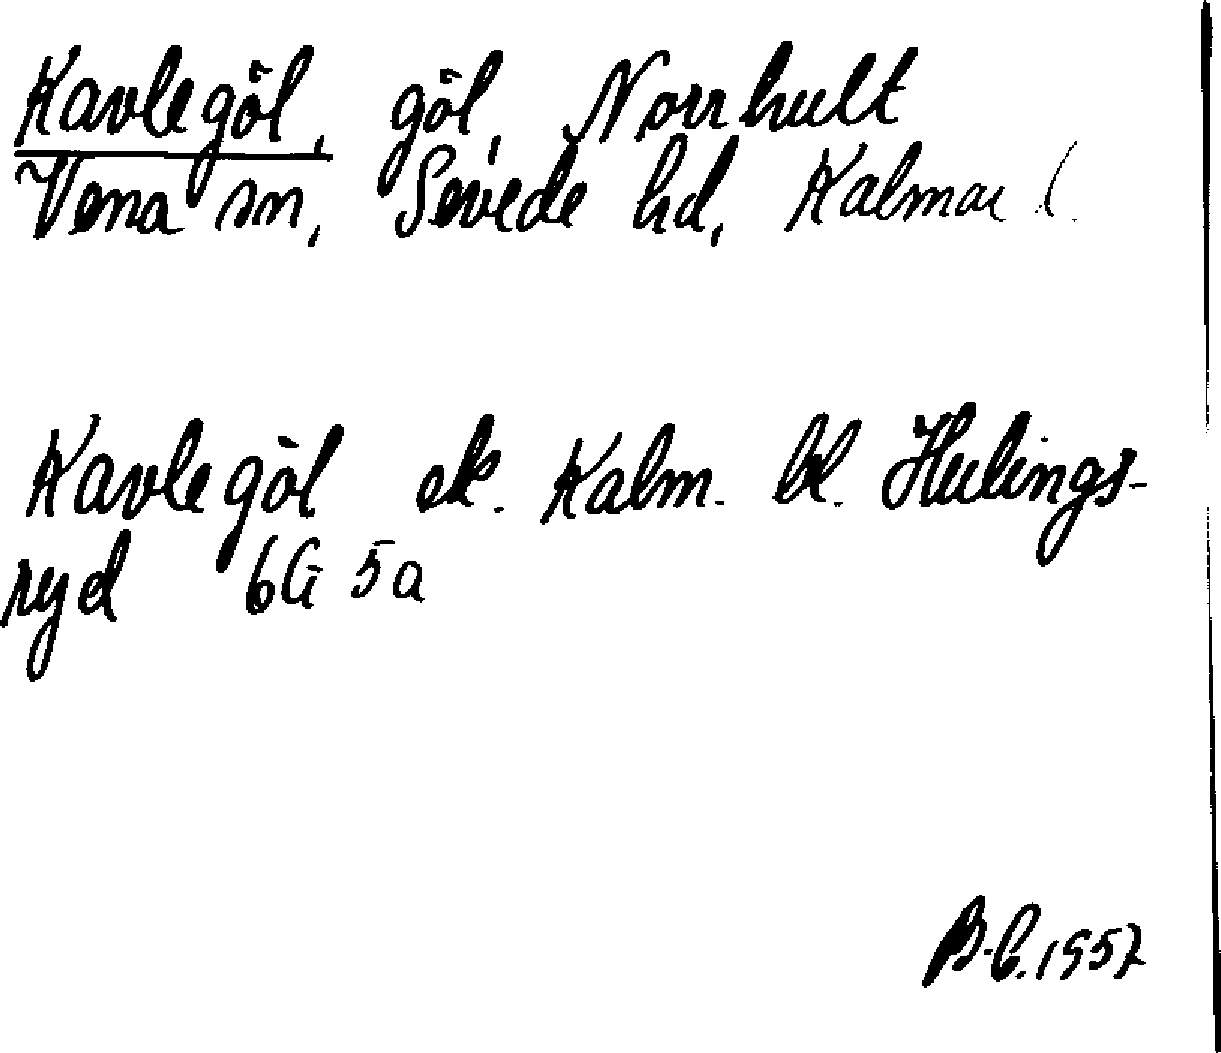 Kavlegöl, göl, Norrhult
Vena sn, Sevede hd, Kalmar l.
Kavlegöl ek. Kalm. bl. Hulings-
ryd 6G 5a
B-b. 1957